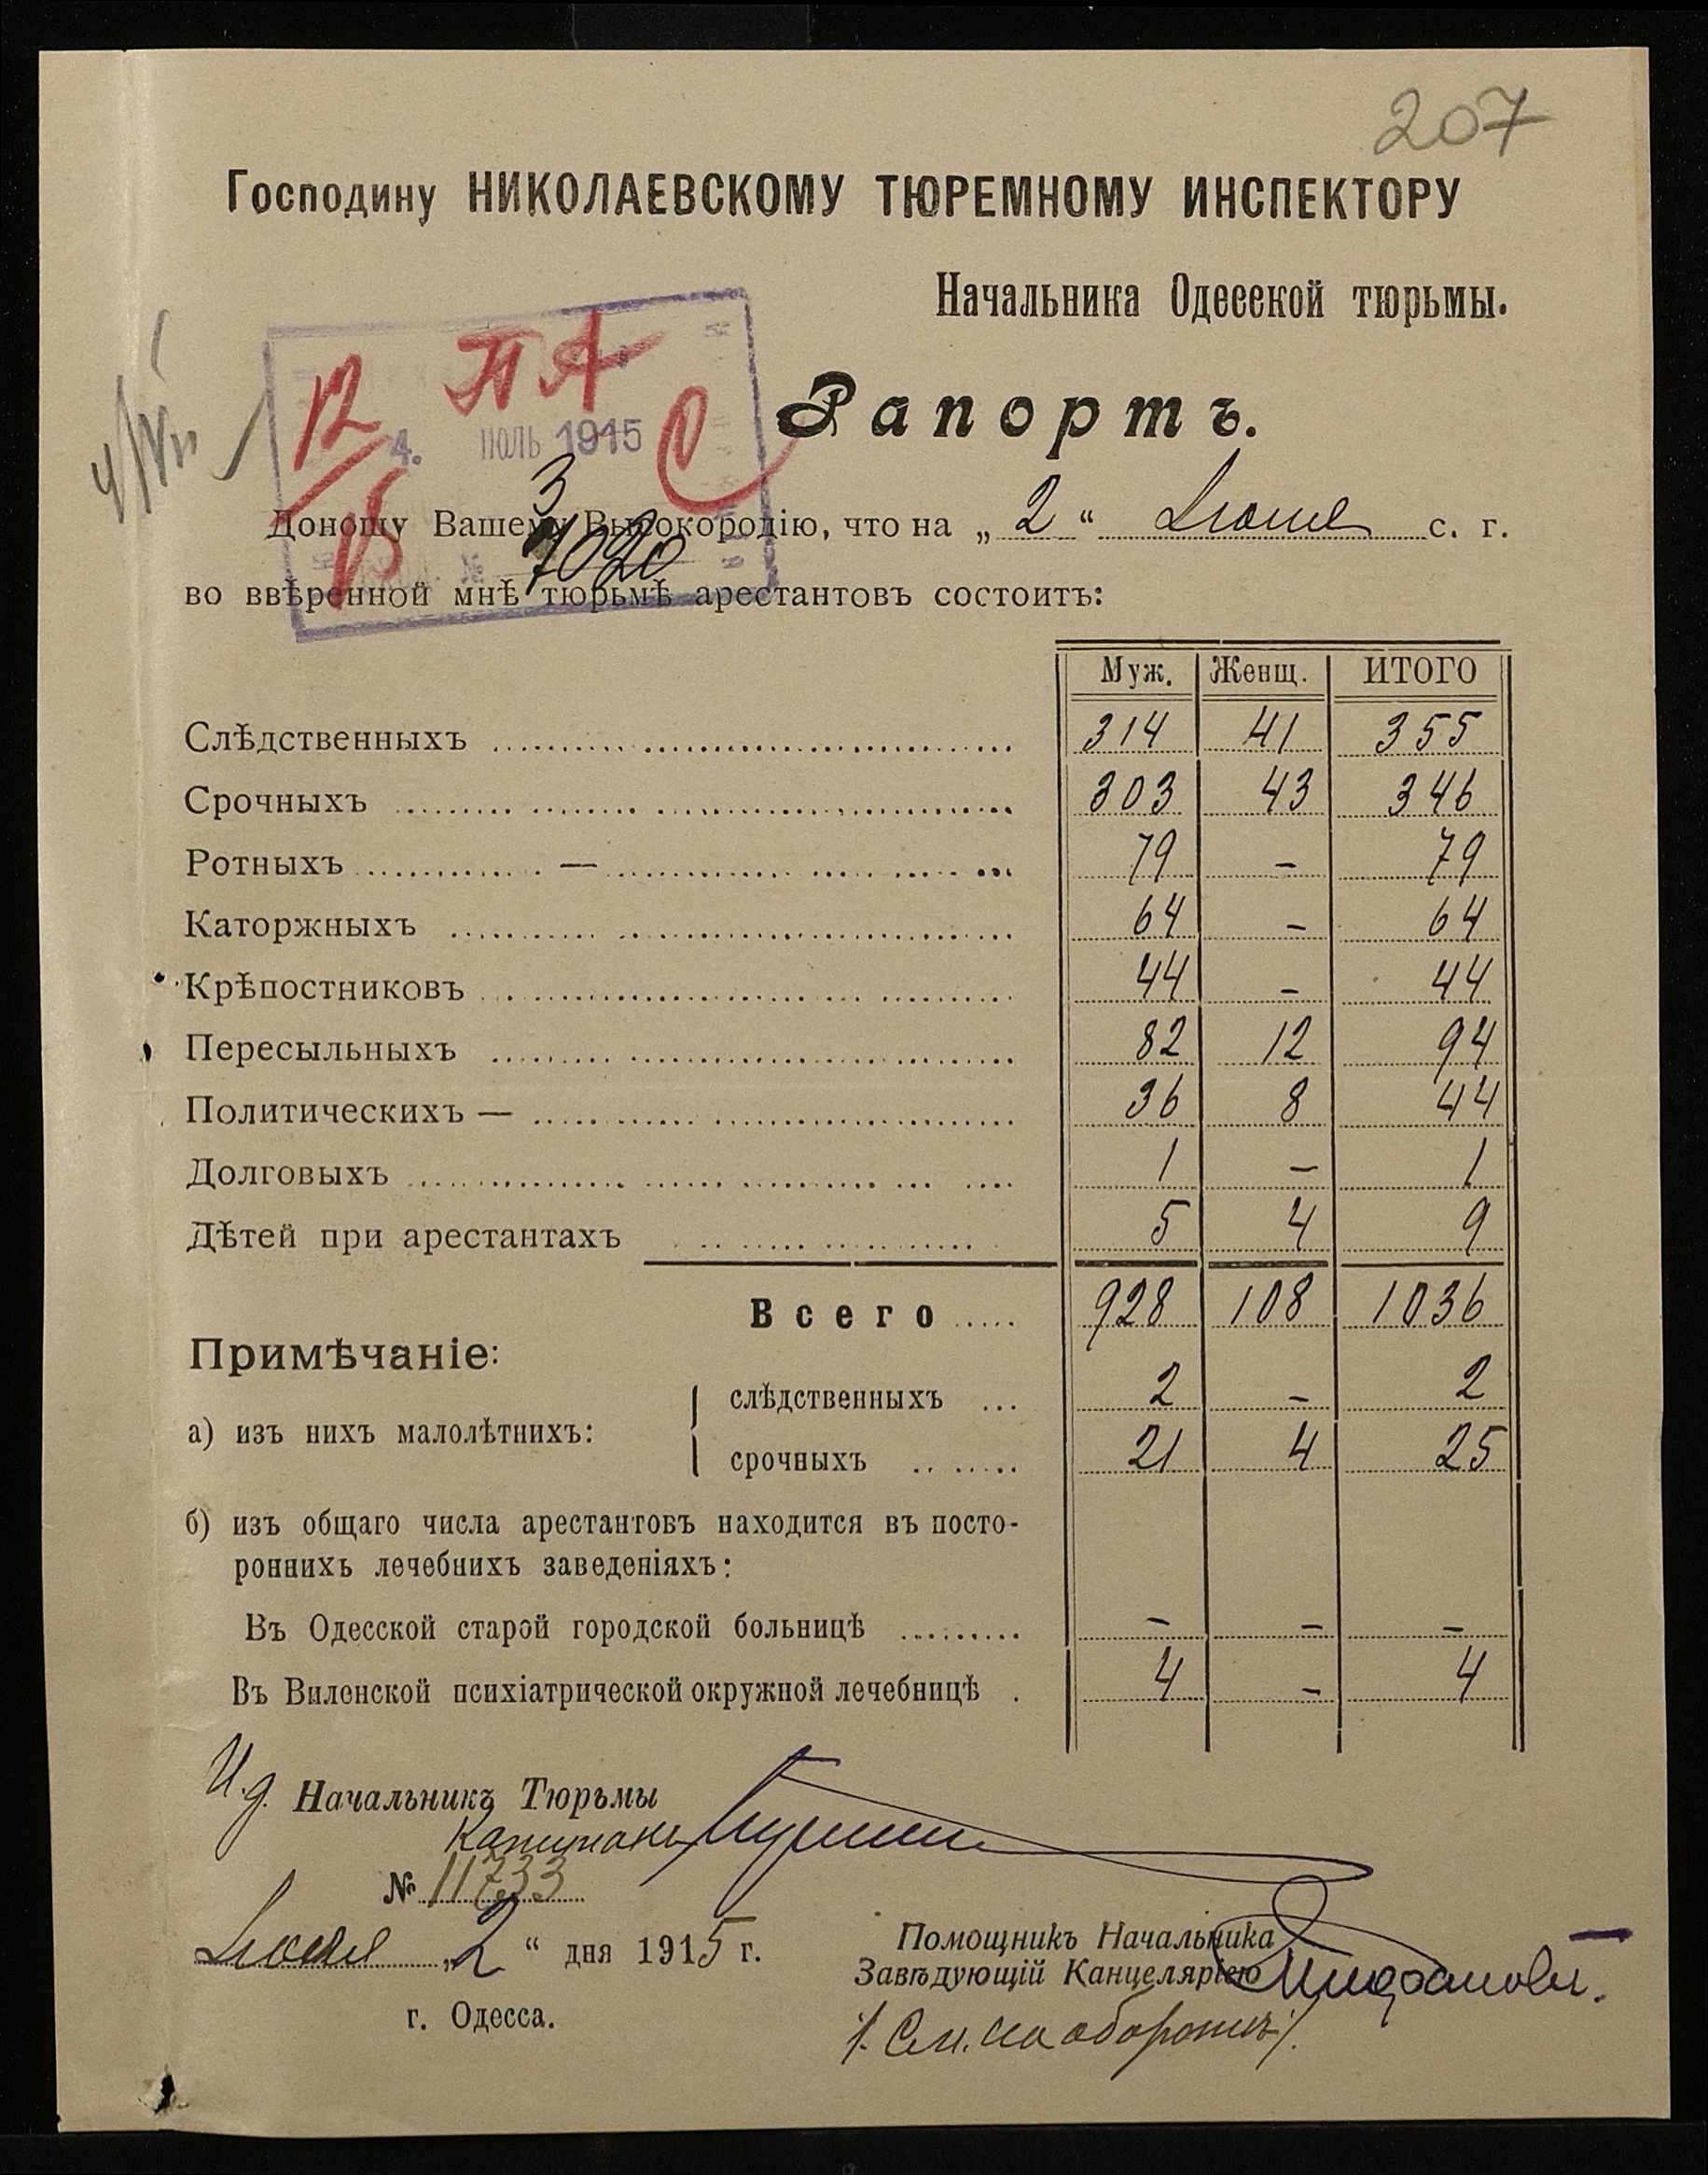 207
Господину НИКОЛАЕВСКОМУ ТЮРЕМНОМУ ИНСПЕКТОРУ
Начальника Одесской тюрьмы.
12 ПА С
4. ІЮЛЬ 1915
4/VII
Рапортъ.
3
Доношу Вашему Высокородію, что на „ 2 “ Іюля с. г.
№ 7020
во ввѣренной мнѣ тюрьмѣ арестантовъ состоитъ:
Муж. Женщ. ИТОГО
Слѣдственныхъ 314 41 355
Срочныхъ 303 43 346
Ротныхъ — 79 - 79
Каторжныхъ 64 - 64
Крѣпостниковъ 44 - 44
Пересыльныхъ 82 12 94
Политическихъ — 36 8 44
Долговыхъ 1 - 1
Дѣтей при арестантахъ 5 4 9
Всего 928 108 1036
Примѣчаніе:
слѣдственныхъ 2 - 2
а) изъ нихъ малолѣтнихъ:
срочныхъ 21 4 25
б) изъ общаго числа арестантовъ находится въ посто-
роннихъ лечебнихъ заведеніяхъ:
Въ Одесской старой городской больницѣ - - -
Въ Виленской психіатрической окружной лечебницѣ 4 - 4
И.д. Начальникъ Тюрьмы
Капитанъ
№ 11733
Іюля „ 2 “ дня 1915 г.
Помощникъ Начальника
Завѣдующій Канцеляріею
г. Одесса.
/. См. на оборотѣ /.